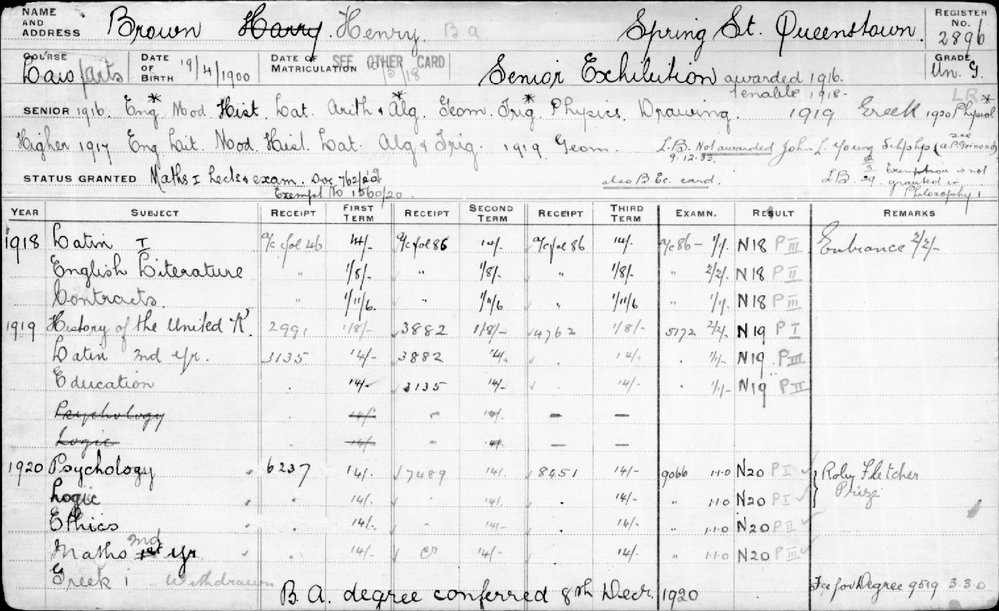 NAME AND ADDRESS Brown Harry Henry B a Spring St. Queenstown. REGISTER No. 2896
COURSE Law/Arts DATE OF BIRTH 19/4/1900 DATE OF MATRICULATION SEE OTHER CARD /18 Senior Exhibition awarded 1916. tenable 1918- GRADE Un. G.
LR
SENIOR 1916. Eng* Mod Hist Lat. Arith & Alg.* Geom. Trig.* Physics. Drawing. 1919 Greek 1920 Physiol*
Higher 1917 Eng Lit. Mod Hist Lat. Alg & Trig. 1919 Geom. LL.B. Not awarded John L. Young Schshp
9.12.33.
STATUS GRANTED Maths I Lects & exam. Doc 762/ also B.Ec. card. LL.B. Exemption is not granted in Philosophy 1
Exempt No 1560/20
YEAR SUBJECT RECEIPT FIRST TERM RECEIPT SECOND TERM RECEIPT THIRD TERM EXAMN. RESULT REMARKS
1918 Latin I a/c fol 46 14/- a/c fol 86 14/- a/c fol 86 14/- a/c 86 - 1/1/- N18 P III Entrance 2/2/-
English Literature 1/8/- " 1/8/- " 1/8/- " 2/2/- N18 P II
Contracts. 1/11/6. " 1/11/6 " 1/11/6 " 1/1/- N18 P III
1919 History of the United K. 2991 1/8/- 3882 1/8/- 4762 1/8/- 5172 2/2/- N19 P I
Latin 2nd yr. 3135 14/- 3882 14/- . 14/- . 1/1/- N19 P III
Education . 14/- 3135 14/- 14/- . 1/1/- N19 P II
Psychology . 14/- " 14/- — —
Logic . 14/- " 14/- — —
1920 Psychology 6237 14/- 7489 14/- 8451 14/- 9066 1.1.0 N20 P I Roby Fletcher Prize
Logic " 14/- " 14/- 14/- " 1.1.0 N20 P I
Ethics " 14/- 14/- " 14/- " 1.1.0 N20 P II
Maths 1st 2nd yr " 14/- cr 14/- " 14/- " 1.1.0 N20 P III
Greek 1 Withdrawn Fee for Degree 9519 3.3.0
B.A. degree conferred 8th Decr. 1920